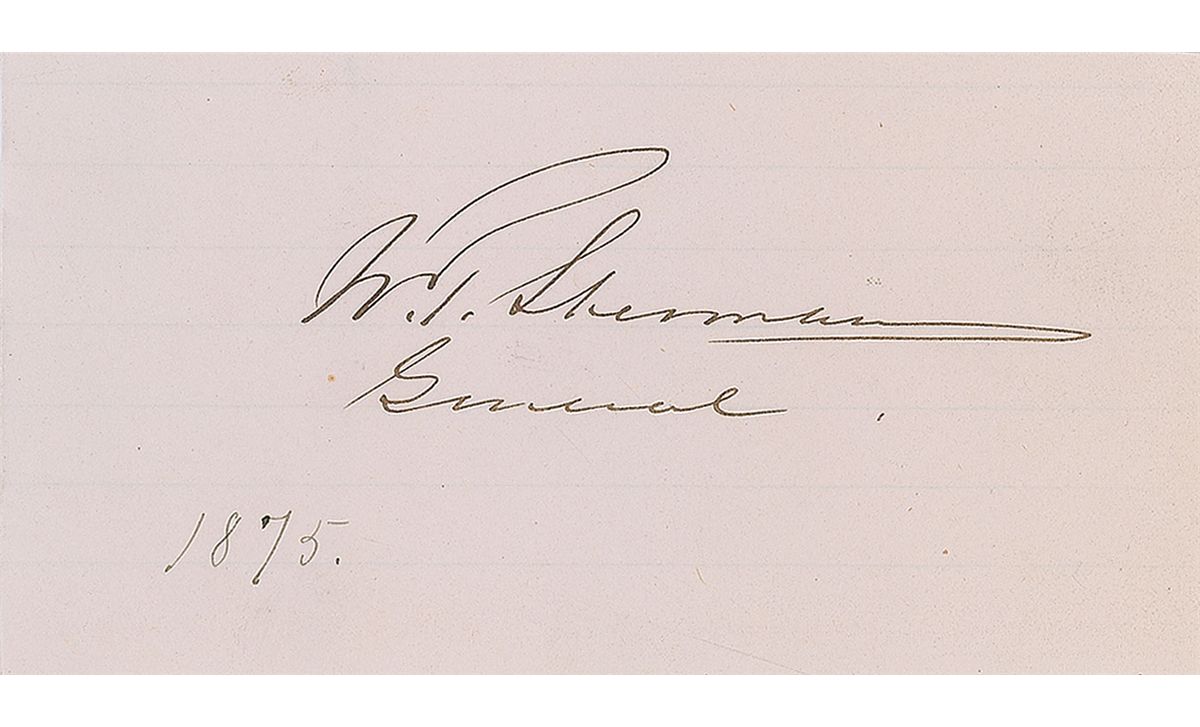 W. T. Sherman
General
1875.